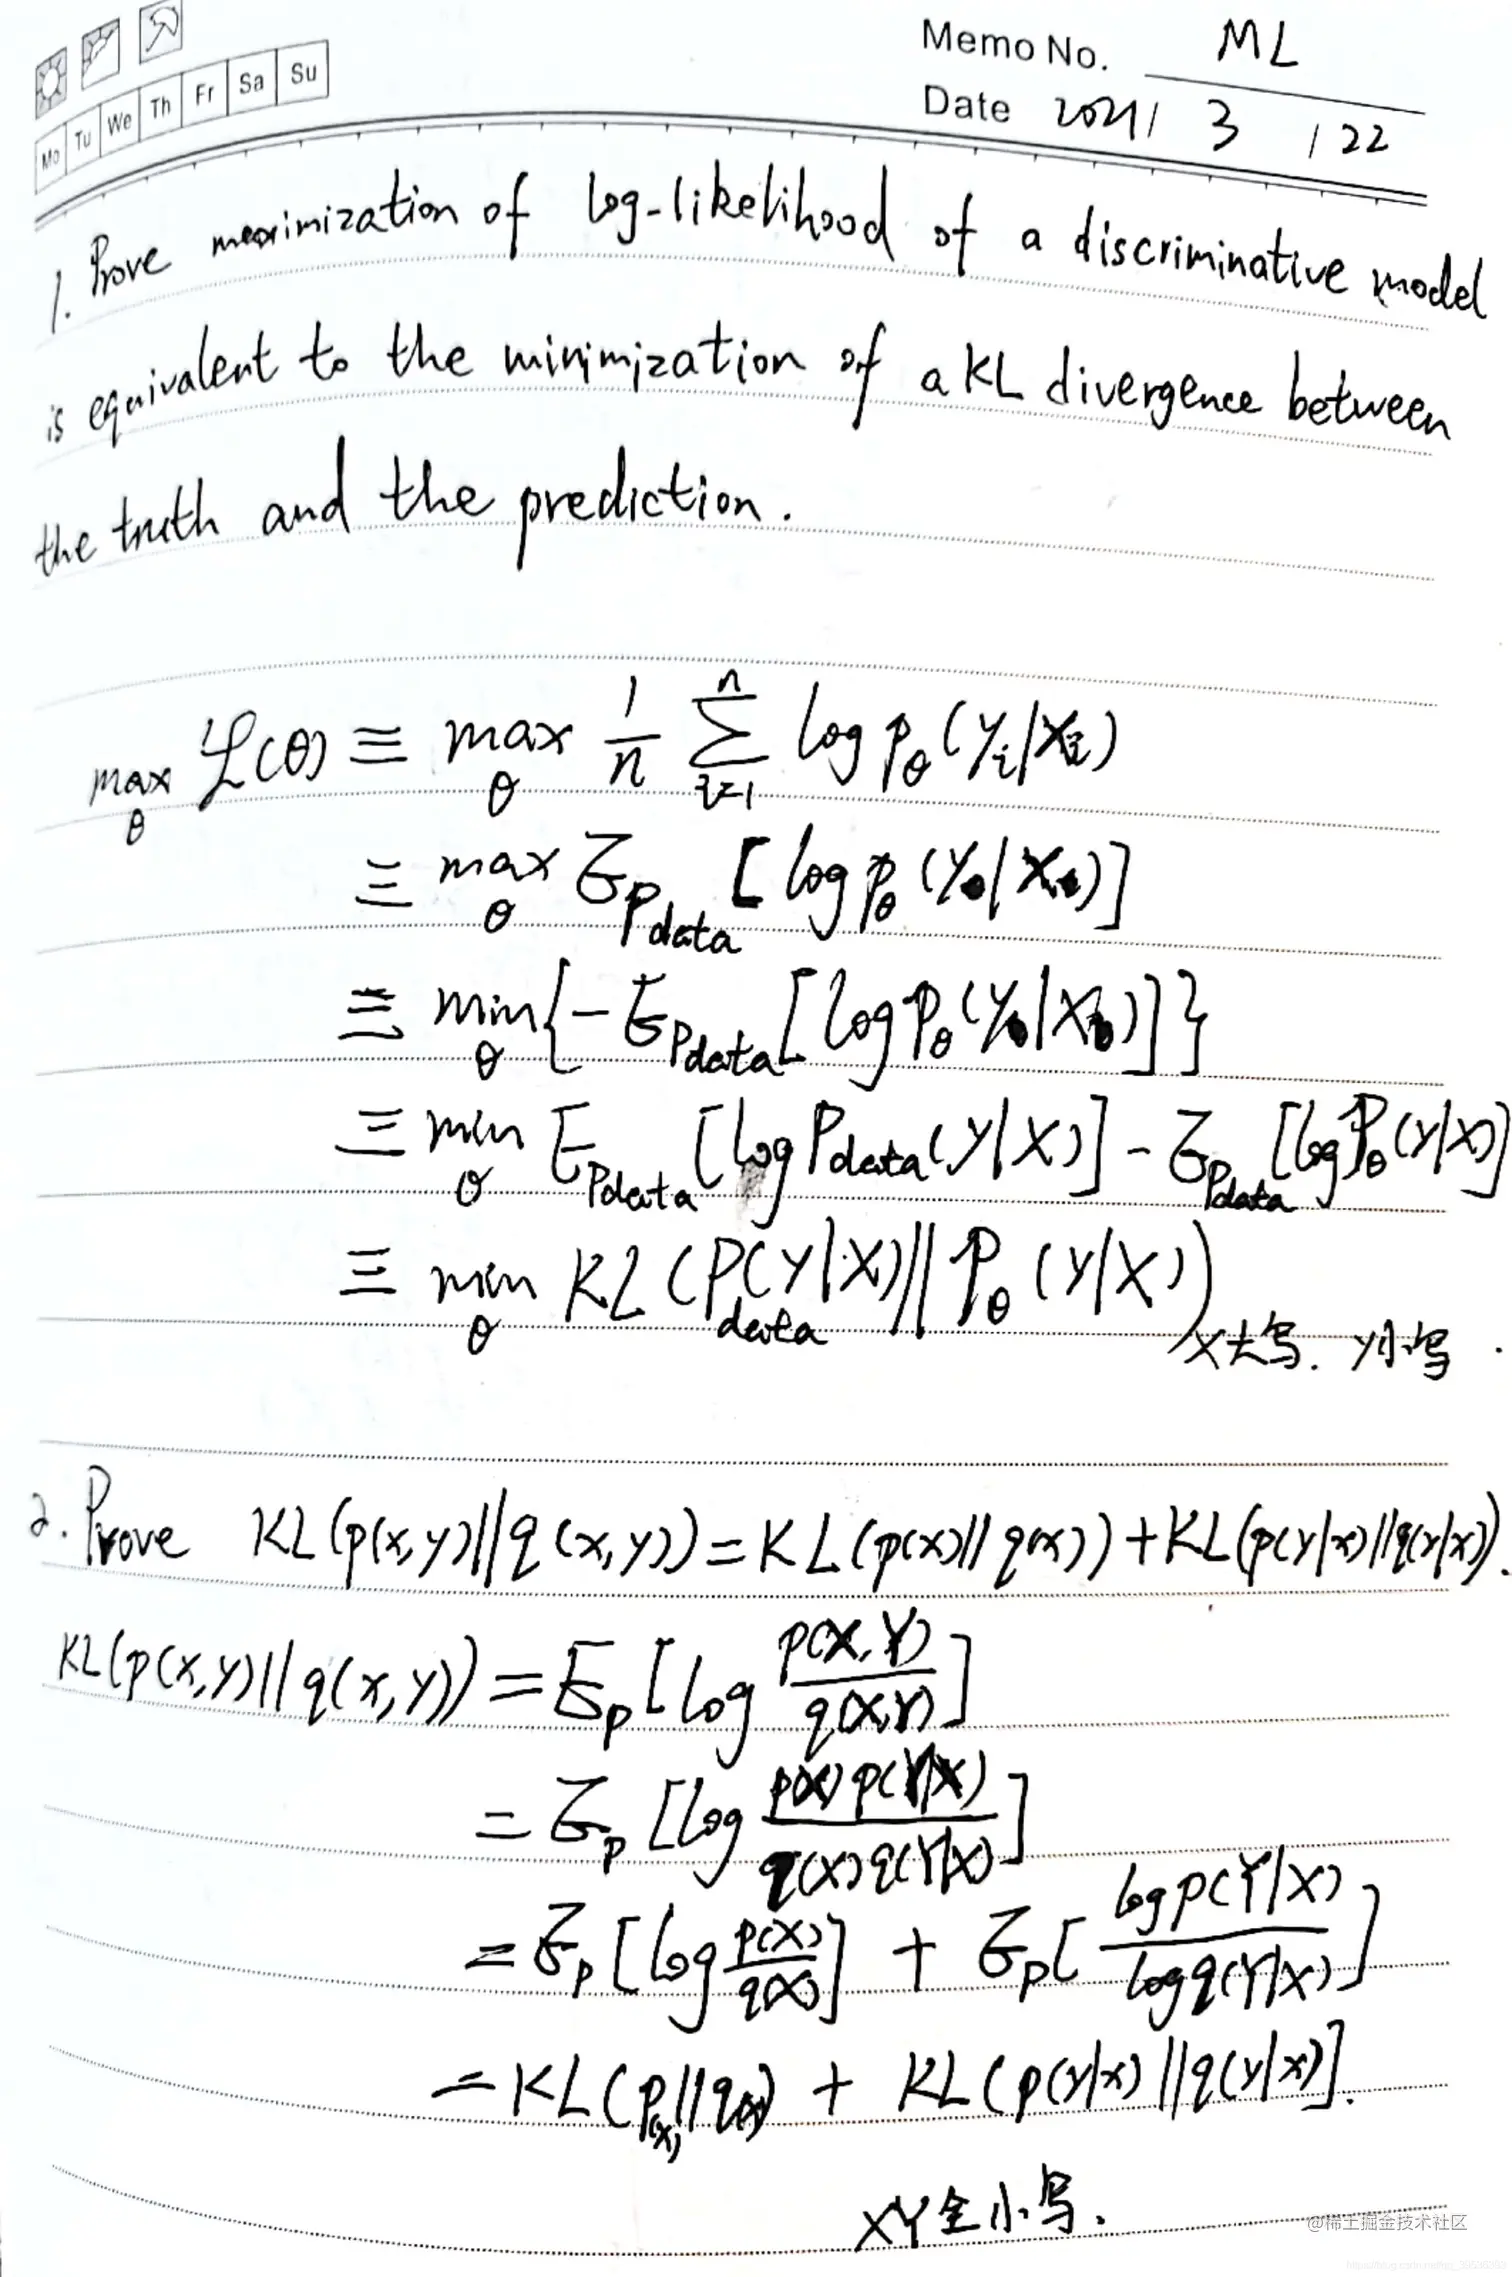 Memo No. ML
Mo Tu We Th Fr Sa Su
Date 2021 / 3 / 22
1. Prove maximization of log-likelihood of a discriminative model
is equivalent to the minimization of a KL divergence between
the truth and the prediction.
max_θ ℒ(θ) ≡ max_θ 1/n ∑_{i=1}^{n} log p_θ(Y_i|X_i)
≡ max_θ E_{Pdata} [log p_θ(Y|X)]
≡ min_θ {-E_{Pdata} [log P_θ(Y|X)]}
≡ min_θ E_{Pdata} [log Pdata(Y|X)] - E_{Pdata} [log P_θ(Y|X)]
≡ min_θ KL (P_{data}(Y|X) || P_θ(Y|X))
X大写. Y小写.
2. Prove KL(p(x,y)||q(x,y)) = KL(p(x)||q(x)) + KL(p(y|x)||q(y|x)).
KL(p(x,y)||q(x,y)) = E_p [log p(X,Y)/q(X,Y)]
= E_p [log p(X)p(Y|X)/q(X)q(Y|X)]
= E_p [log p(X)/q(X)] + E_p [log p(Y|X)/log q(Y|X)]
= KL(p(x)||q(x)) + KL(p(y|x)||q(y|x)].
XY全小写.
@稀土掘金技术社区